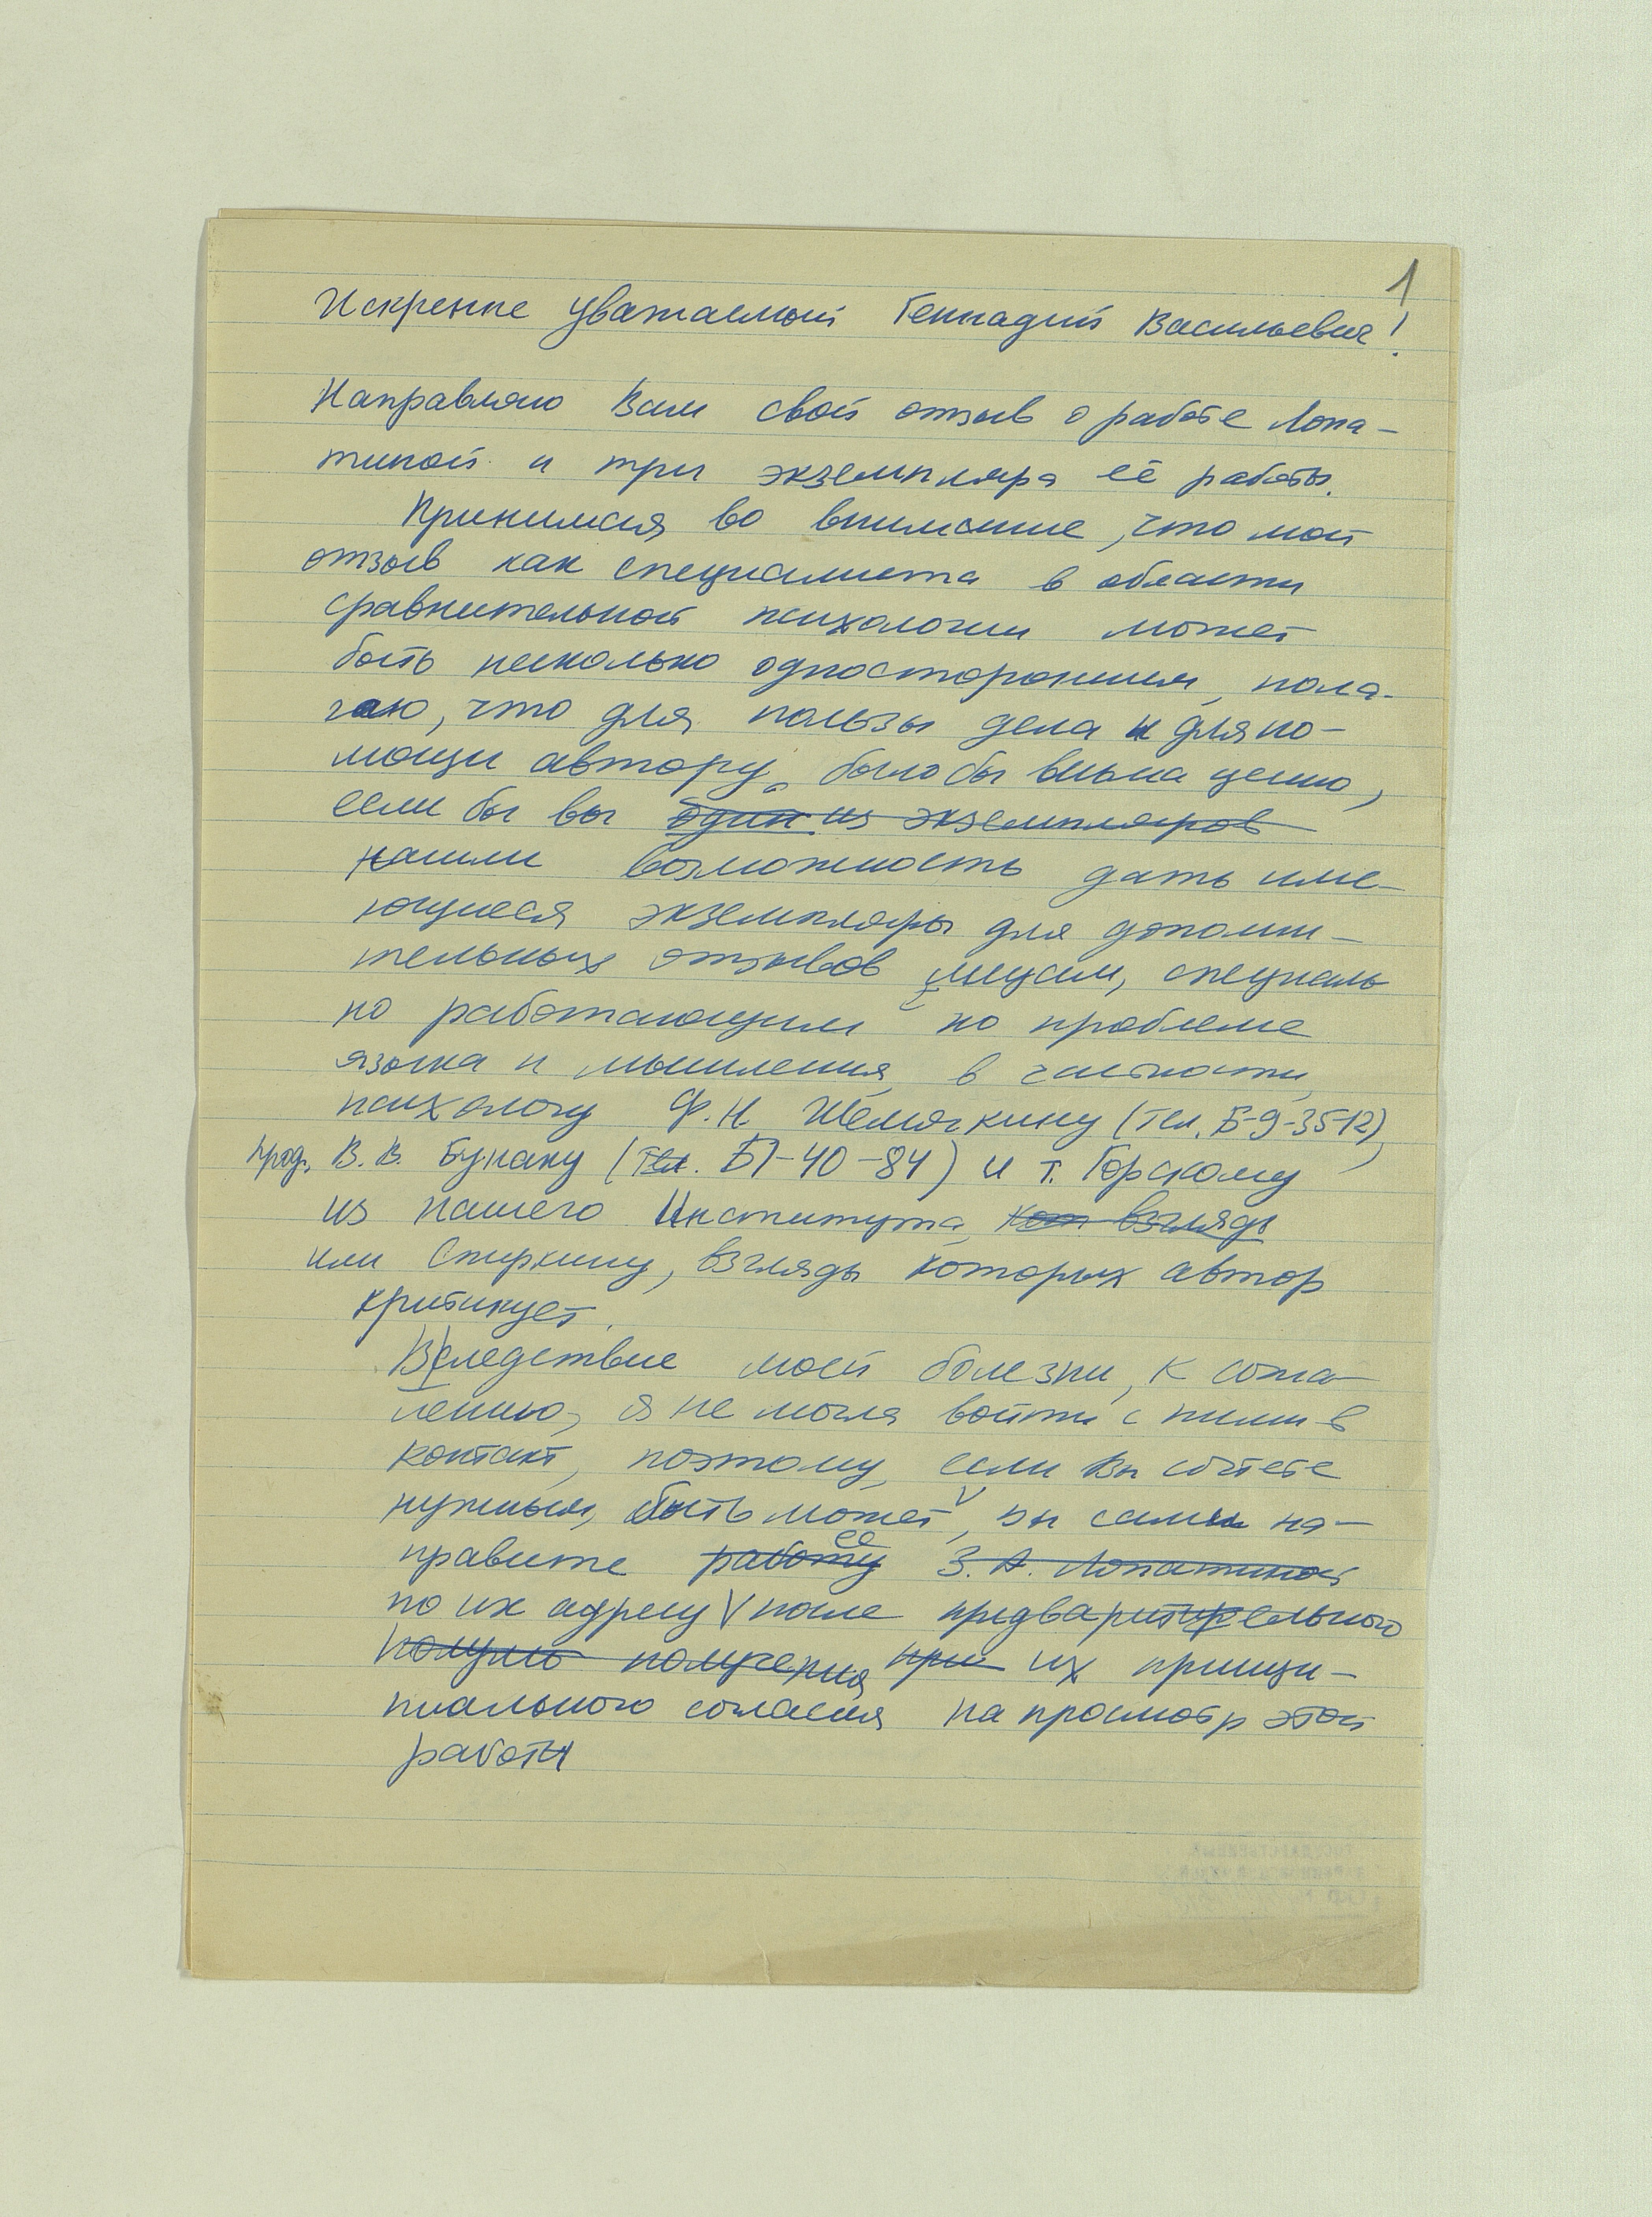 1
Искренне уважаемый Геннадий Васильевич!
Направляю Вам свой отзыв о работе Лопа-
тиной и три экземпляра её работы.
Принимая во внимание, что мой
отзыв как специалиста в области
сравнительной психологии может
быть несколько односторонним, пола-
гаю, что для пользы дела и для по-
мощи автору, было бы весьма ценно,
если бы вы один из экземпляров
нашли возможность дать име-
ющиеся экземпляры для дополни-
тельных отзывов лицам, специаль
но работающим по проблеме
языка и мышления, в частности,
психологу Ф.Н. Шемякину (тел. Б-9-35-12),
проф. В.В. Бунаку (тел. Б1-40-84) и т. Горскому
из нашего Института, кот. взгляды
или Спиркину, взгляды которых автор
критикует.
Вследствие моей болезни, к сожа-
лению, я не могла войти с ними в
контакт, поэтому, если Вы сочтете
нужным, быть может, вы сами на-
правите работу ее З.А. Лопатиной
по их адресу V после предварительного
получ получения при их принци-
пиального согласия на просмотр этой
работы